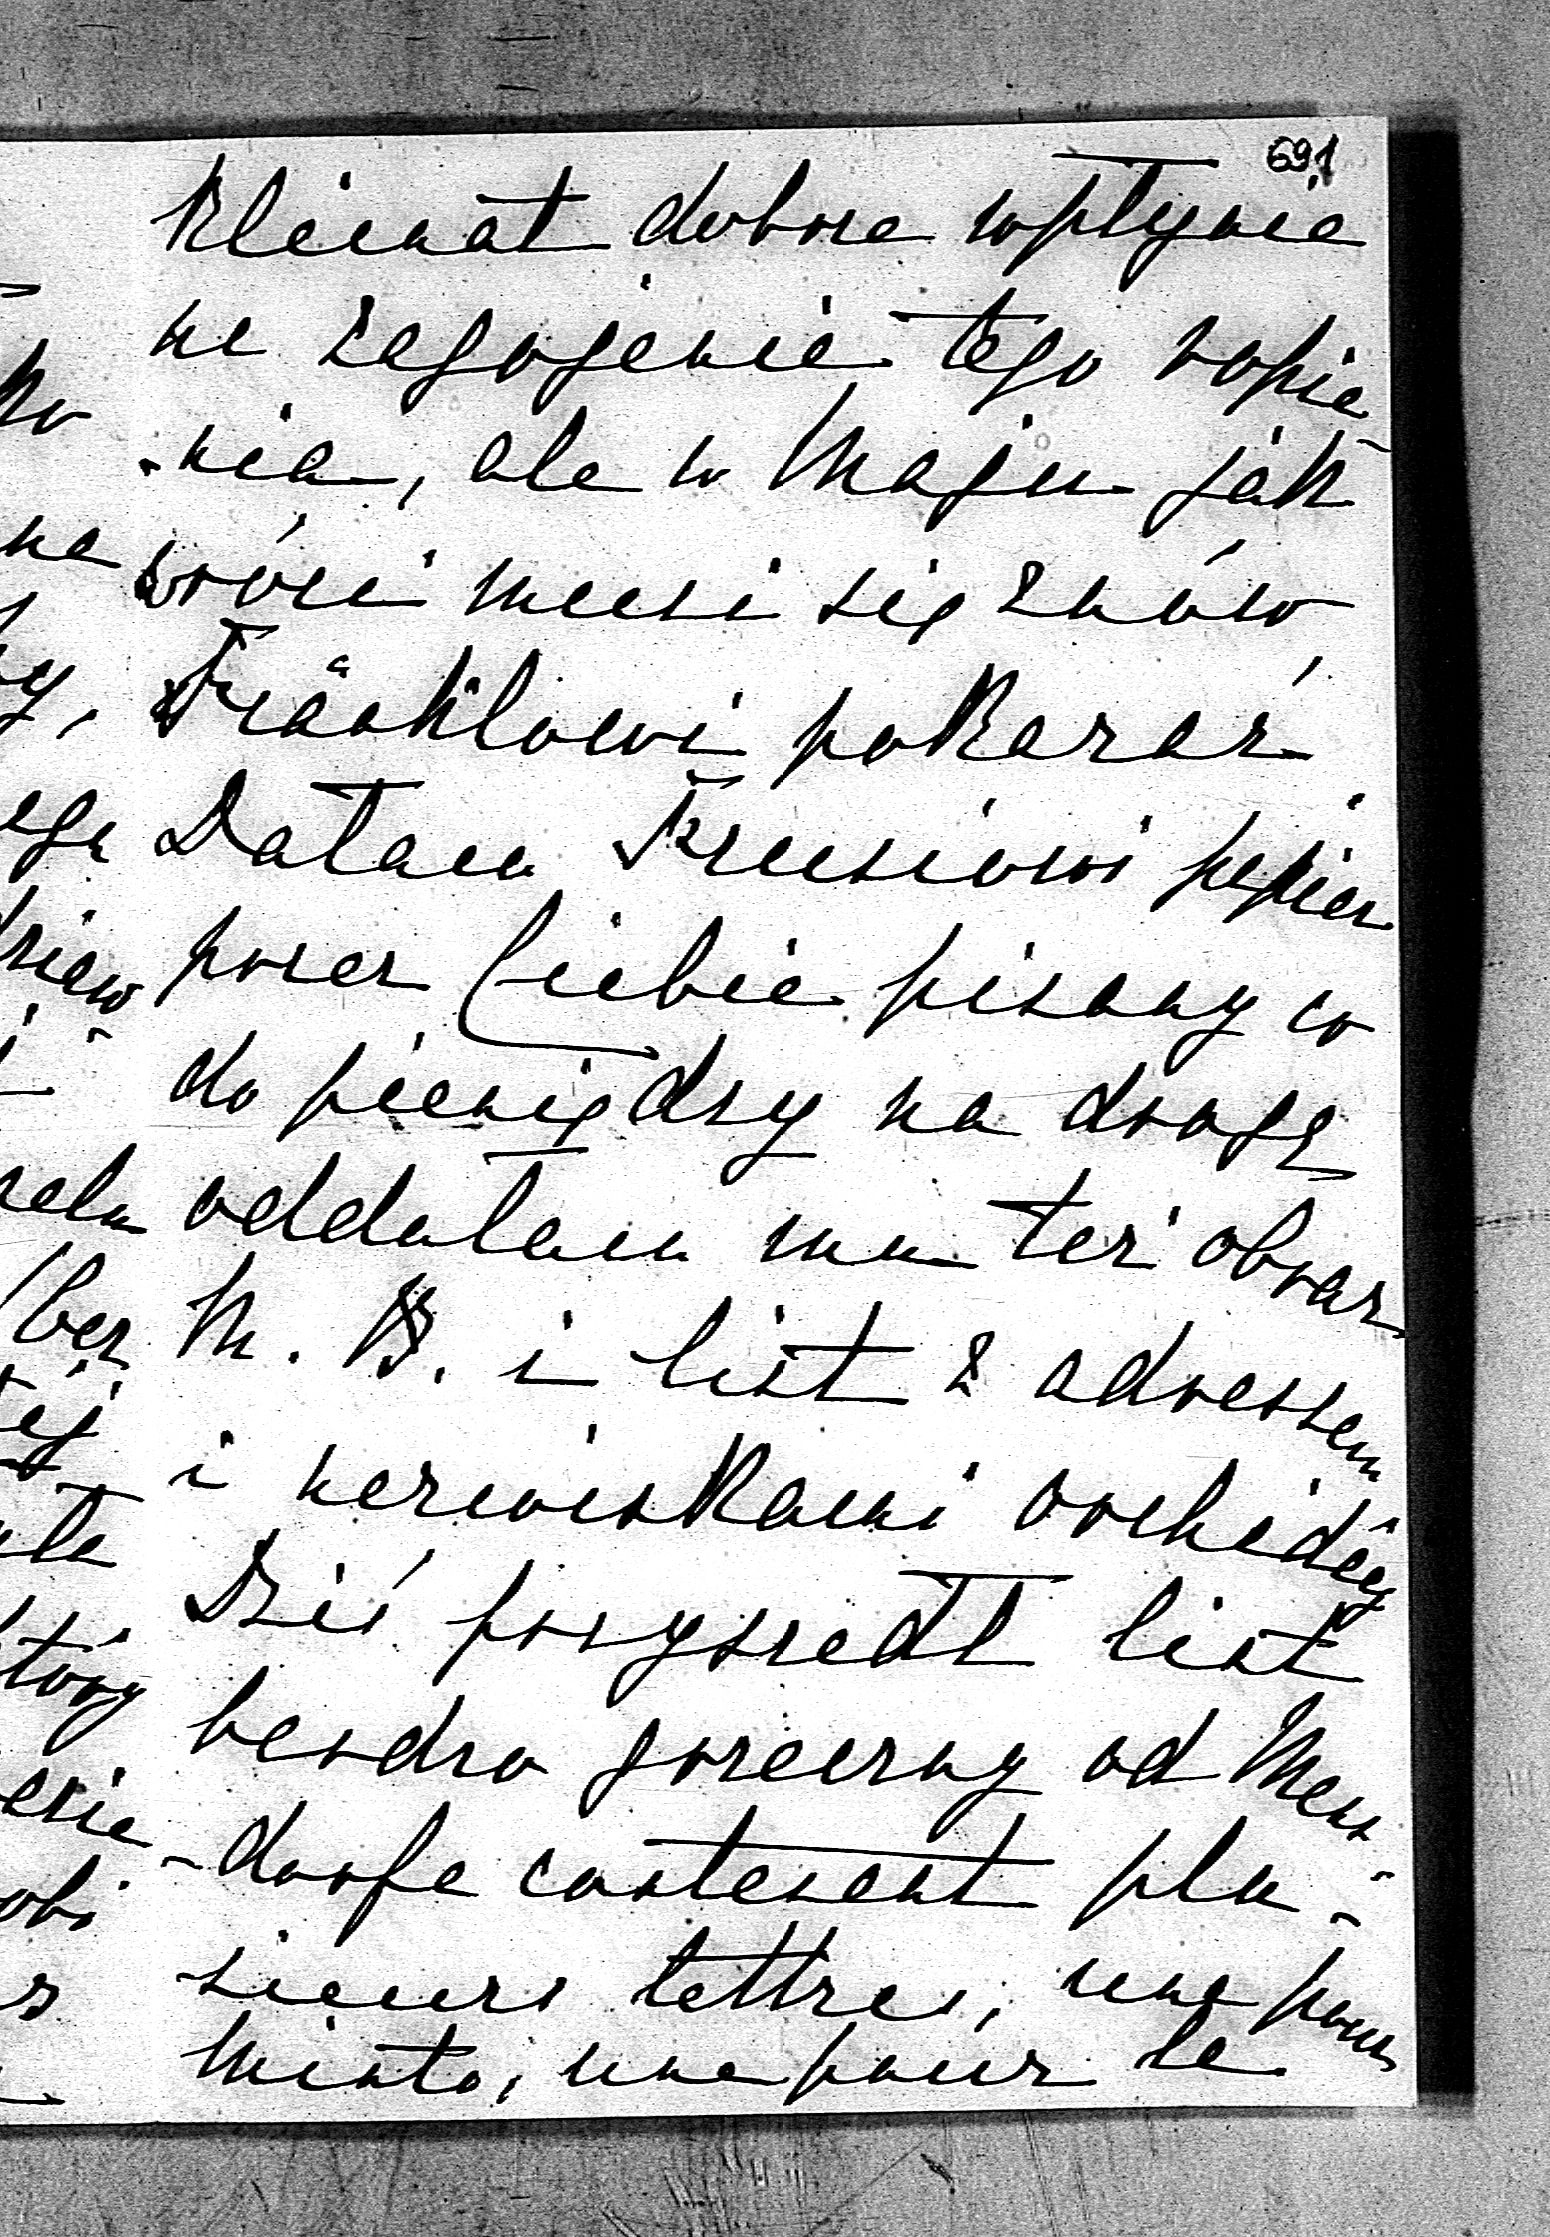 691
Klimat dobrze wpłynie
na zagojenie tego ropie
-nia, ale w Maju jak
wróci musi się znów
Fränklowi pokazać
Dałam Krusiowi papier
przez Ciebie pisany co
do pieniędzy na drogę
oddałam mu też obraz
M. B. i list z adressem
i nazwiskami orchidéy
Dziś przyszedł list
bardzo grzeczny od Mens
-dorfa contenant plu-
sieurs lettres, une pour
Minto, une pour le
ko
na
by,
ego
dziew
(bez
ej
która
ktory
obi